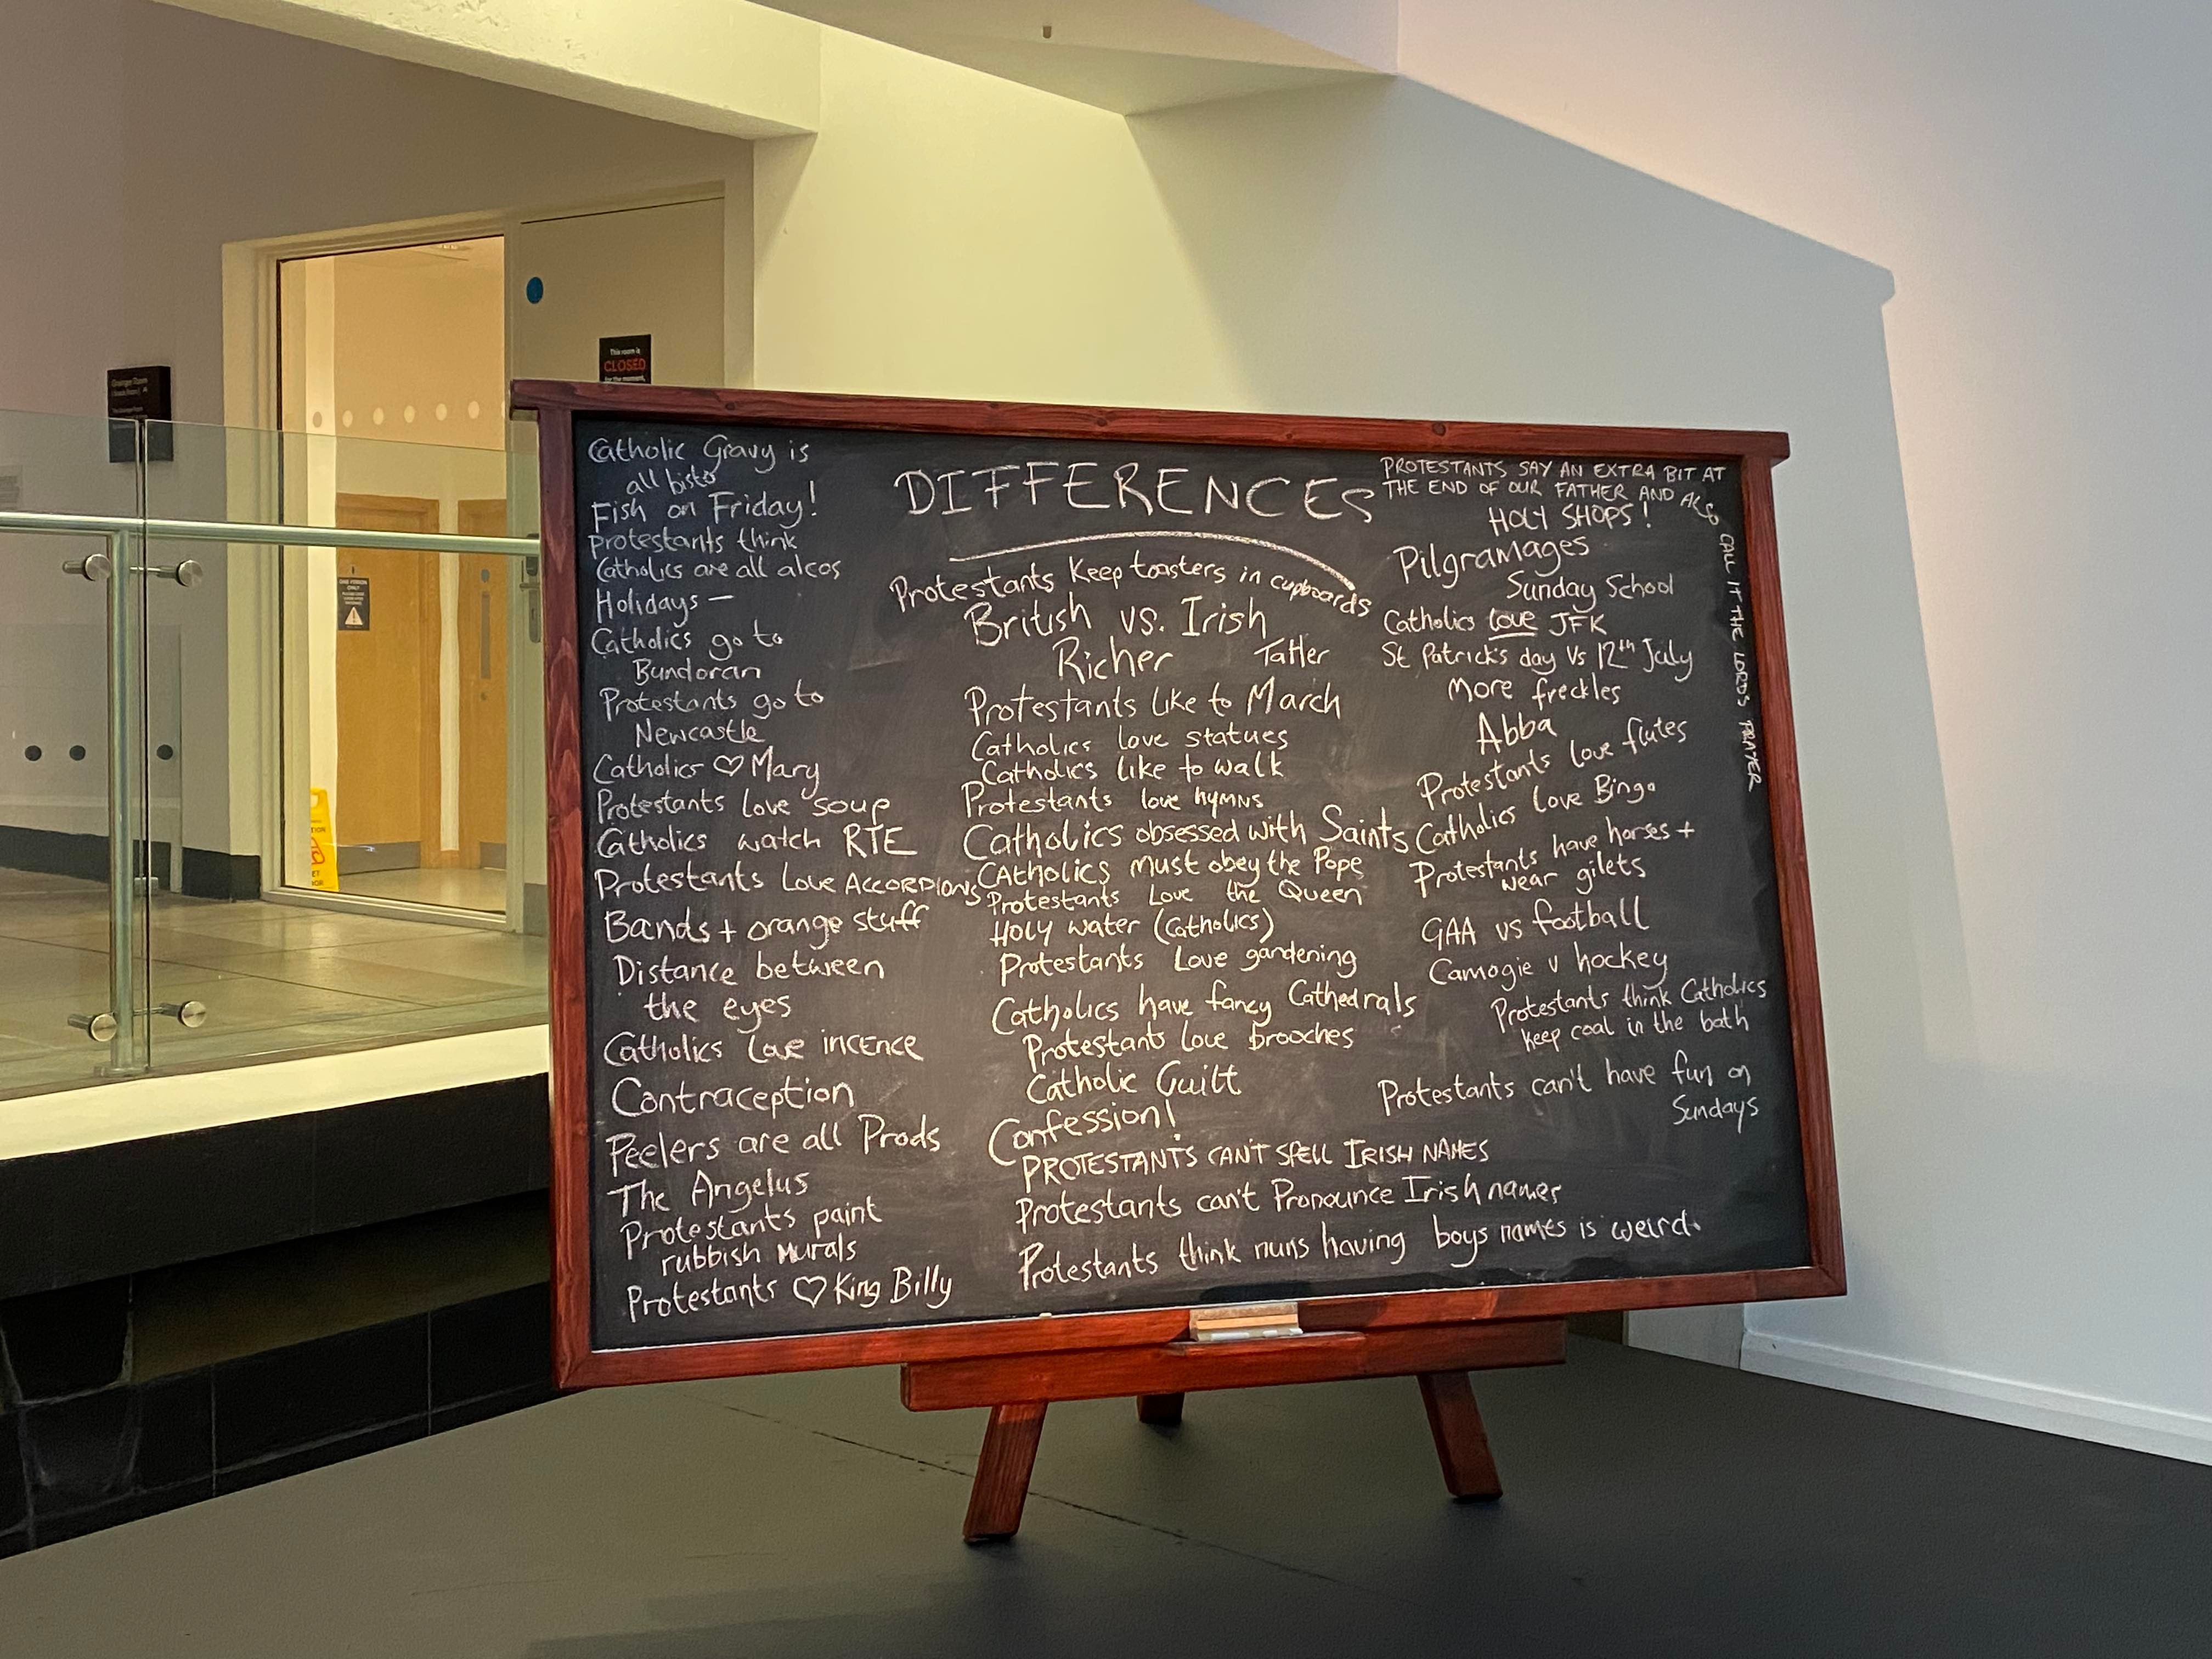 This room is
CLOSED
for the moment.
Catholic Gravy is
all bisto
Fish on Friday!
Protestants think
Catholics are all alcos
Holidays —
Catholics go to
Bundoran
Protestants go to
Newcastle
Catholics ♡ Mary
Protestants love soup
Catholics watch RTE
Protestants Love ACCORDIONS
Bands + orange stuff
Distance between
the eyes
Catholics Love incence
Contraception
Peelers are all Prods
The Angelus
Protestants paint
rubbish murals
Protestants ♡ King Billy
DIFFERENCES
Protestants Keep toasters in cupboards
British vs. Irish
Richer Tatler
Protestants like to March
Catholics love statues
Catholics like to walk
Protestants love hymns
Catholics obsessed with Saints
CAtholics must obey the Pope
Protestants Love the Queen
HOLY water (Catholics)
Protestants Love gardening
Catholics have fancy Cathedrals
Protestants love brooches
Catholic Guilt
Confession!
PROTESTANTS CAN'T SPELL IRISH NAMES
Protestants can't Pronounce Irish names
Protestants think nuns having boys names is weird.
PROTESTANTS SAY AN EXTRA BIT AT
THE END OF OUR FATHER AND ALSO
CALL IT THE LORD'S PRAYER
HOLY SHOPS!
Pilgramages
Sunday School
Catholics love JFK
St Patrick's day Vs 12th July
More freckles
Abba
Protestants love flutes
Catholics love Bingo
Protestants have horses +
wear gilets
GAA vs football
Camogie v hockey
Protestants think Catholics
keep coal in the bath
Protestants can't have fun on
Sundays